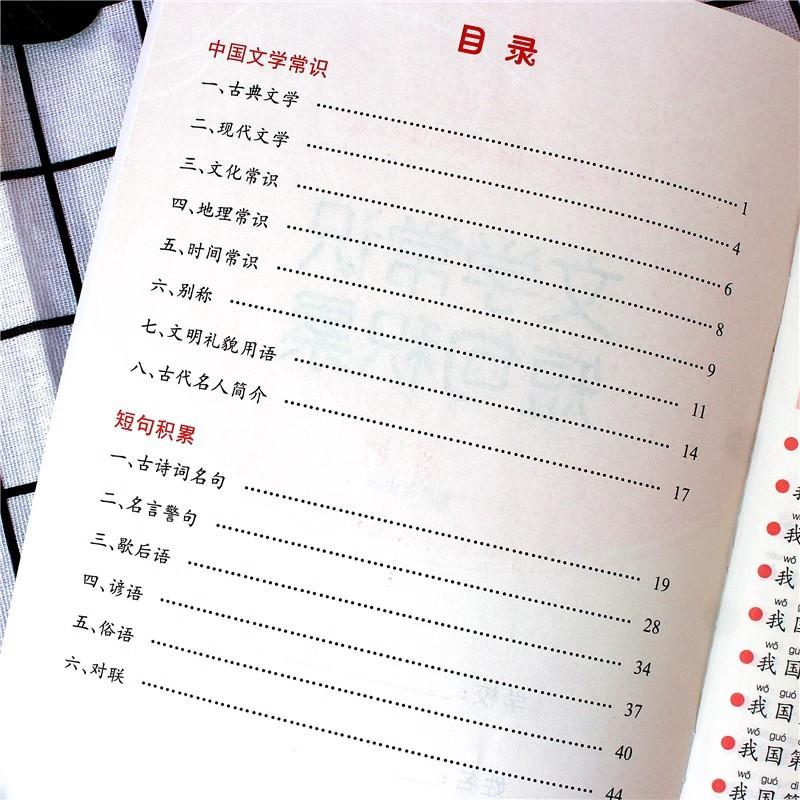 目 录
中国文学常识
一、古典文学 1
二、现代文学 4
三、文化常识 6
四、地理常识 8
五、时间常识 9
六、别称 11
七、文明礼貌用语 14
八、古代名人简介 17
短句积累
一、古诗词名句 19
二、名言警句 28
三、歇后语 34
四、谚语 37
五、俗语 40
六、对联 44
wǒ
我
wǒ
我
wǒ guó
我国
wǒ gu
我国
wǒ guó
我国
wǒ guó dì
我国第
wǒ guó dì
我国第